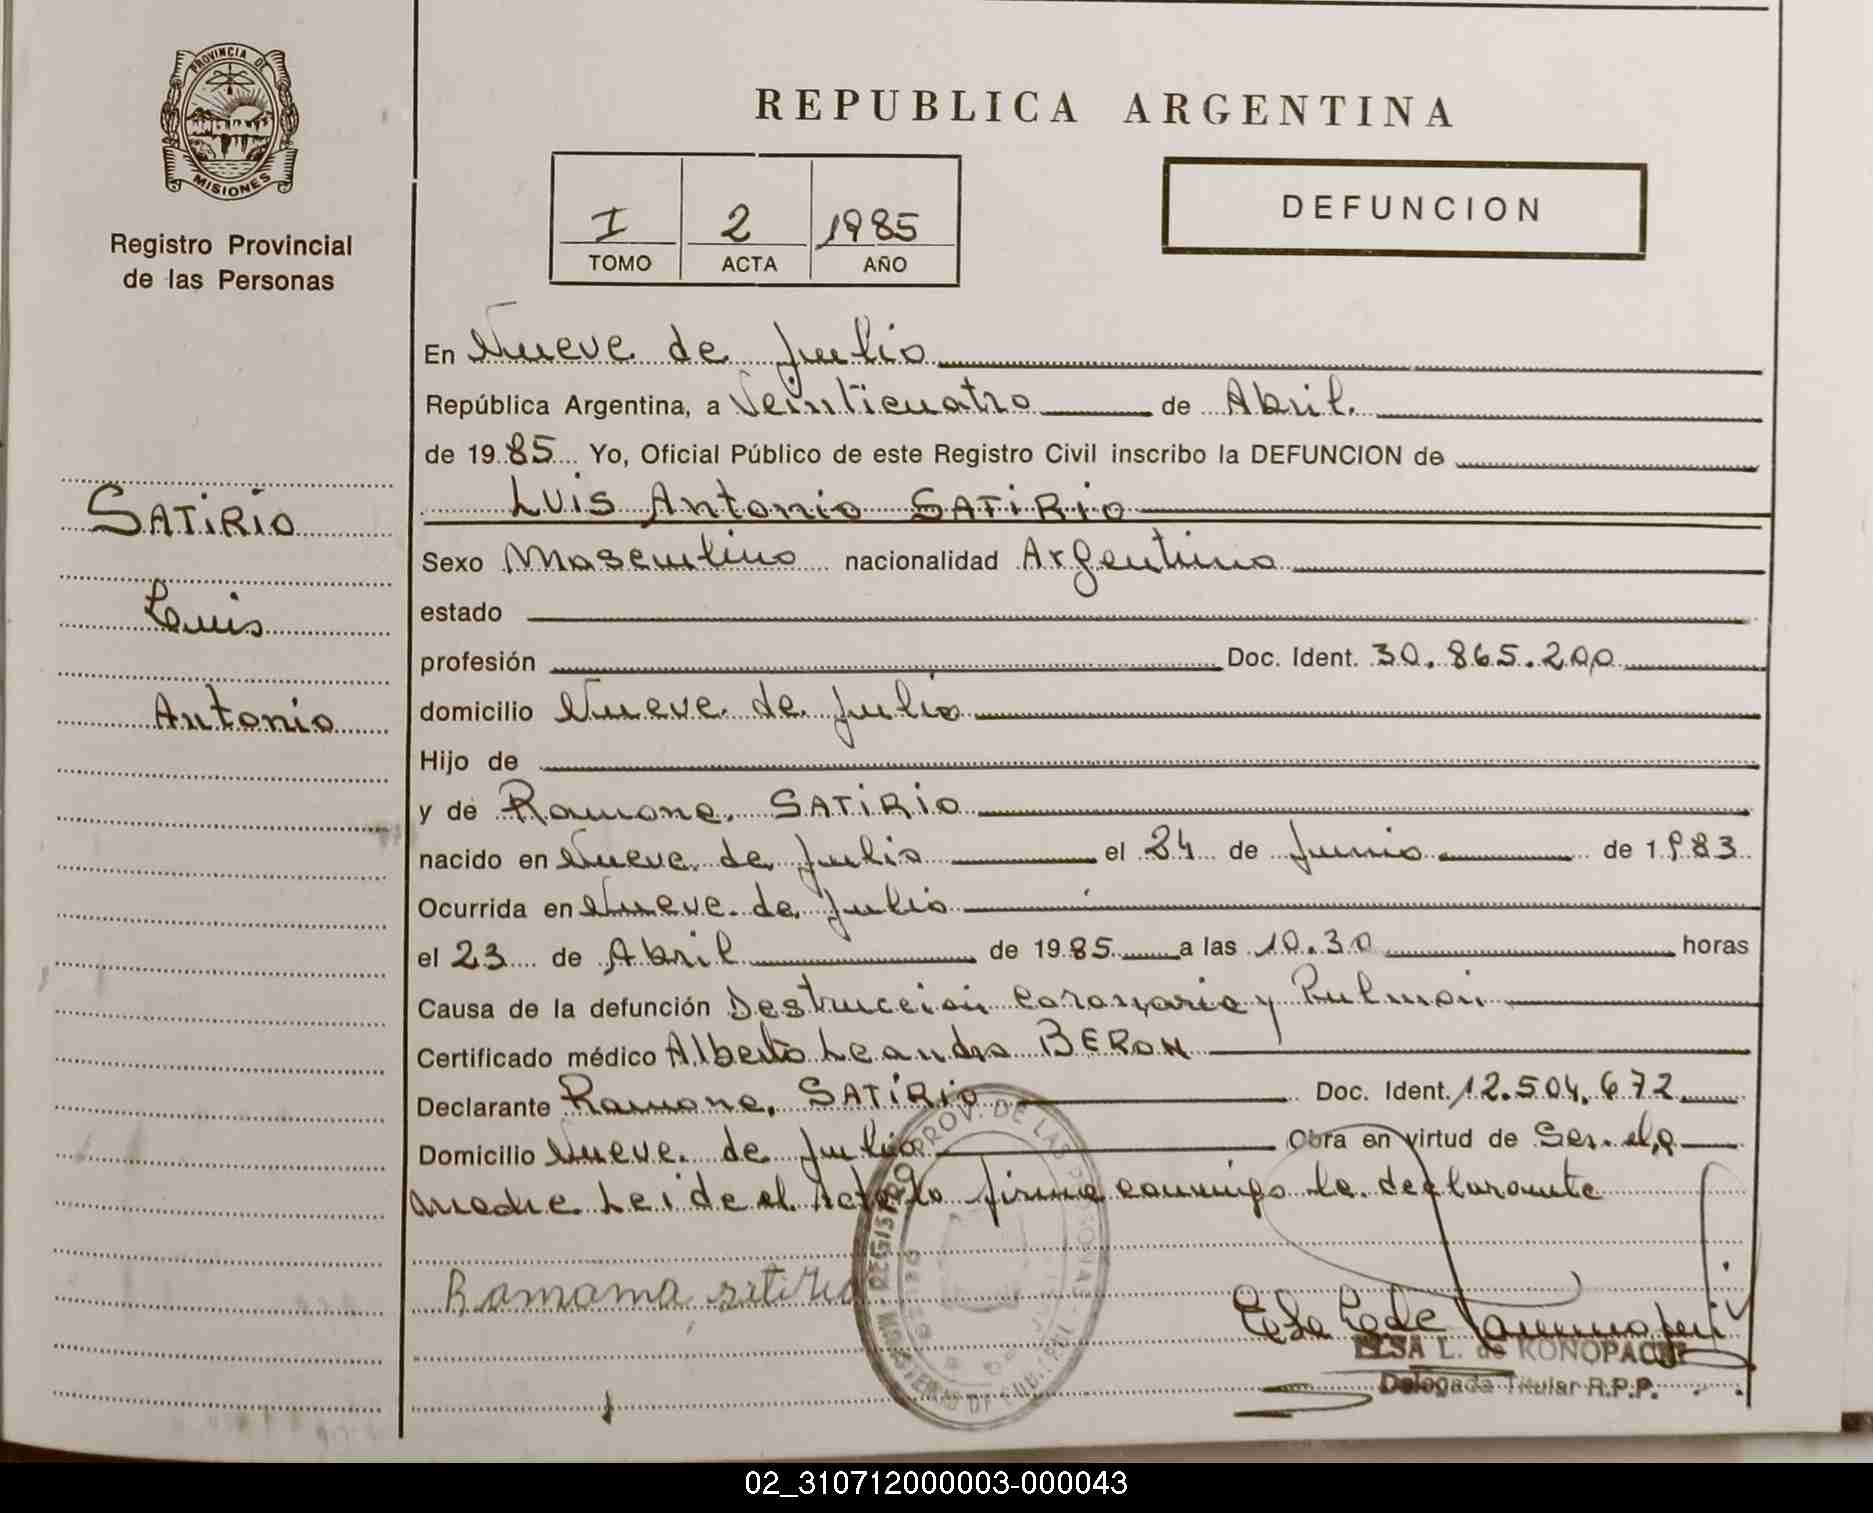 PROVINCIA DE
MISIONES
Registro Provincial
de las Personas
SATIRIO
Luis
Antonio
REPUBLICA ARGENTINA
I 2 1985
TOMO ACTA AÑO
DEFUNCION
En Nueve de Julio
República Argentina, a Veinticuatro de Abril.
de 1985 Yo, Oficial Público de este Registro Civil inscribo la DEFUNCION de
Luis Antonio SATIRIO
Sexo Masculino nacionalidad Argentino
estado
profesión Doc. Ident. 30.865.200
domicilio Nueve de Julio
Hijo de
y de Ramona SATIRIO
nacido en Nueve de Julio el 24 de Junio de 1983
Ocurrida en Nueve de Julio
el 23 de Abril de 1985 a las 10.30 horas
Causa de la defunción Destruccion Coronaria y Pulmon
Certificado médico Alberto Leandro BERON
Declarante Ramona SATIRIO Doc. Ident. 12.504.672
Domicilio Nueve de Julio Obra en virtud de Ser la
madre Leide el Acta la firma conmigo la declarante
Ramama
REGISTRO PROV. DE LAS PERSONAS
ELSA L. de KONOPACKI
Delegada Titular R.P.P.
02_310712000003-000043